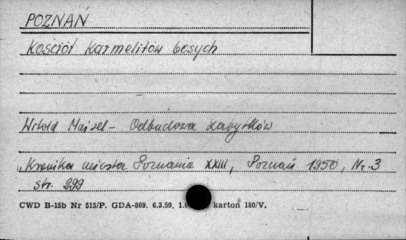 POZNAŃ
Kościół Karmelitów bosych
Witold Maisel - Odbudowa zabytków
"Kronika miasta Poznania XXIII, Poznań 1950, Nr. 3
str. 299
CWD B-15b Nr 515/P. GDA-809. 6.3.59, karton 180/V.